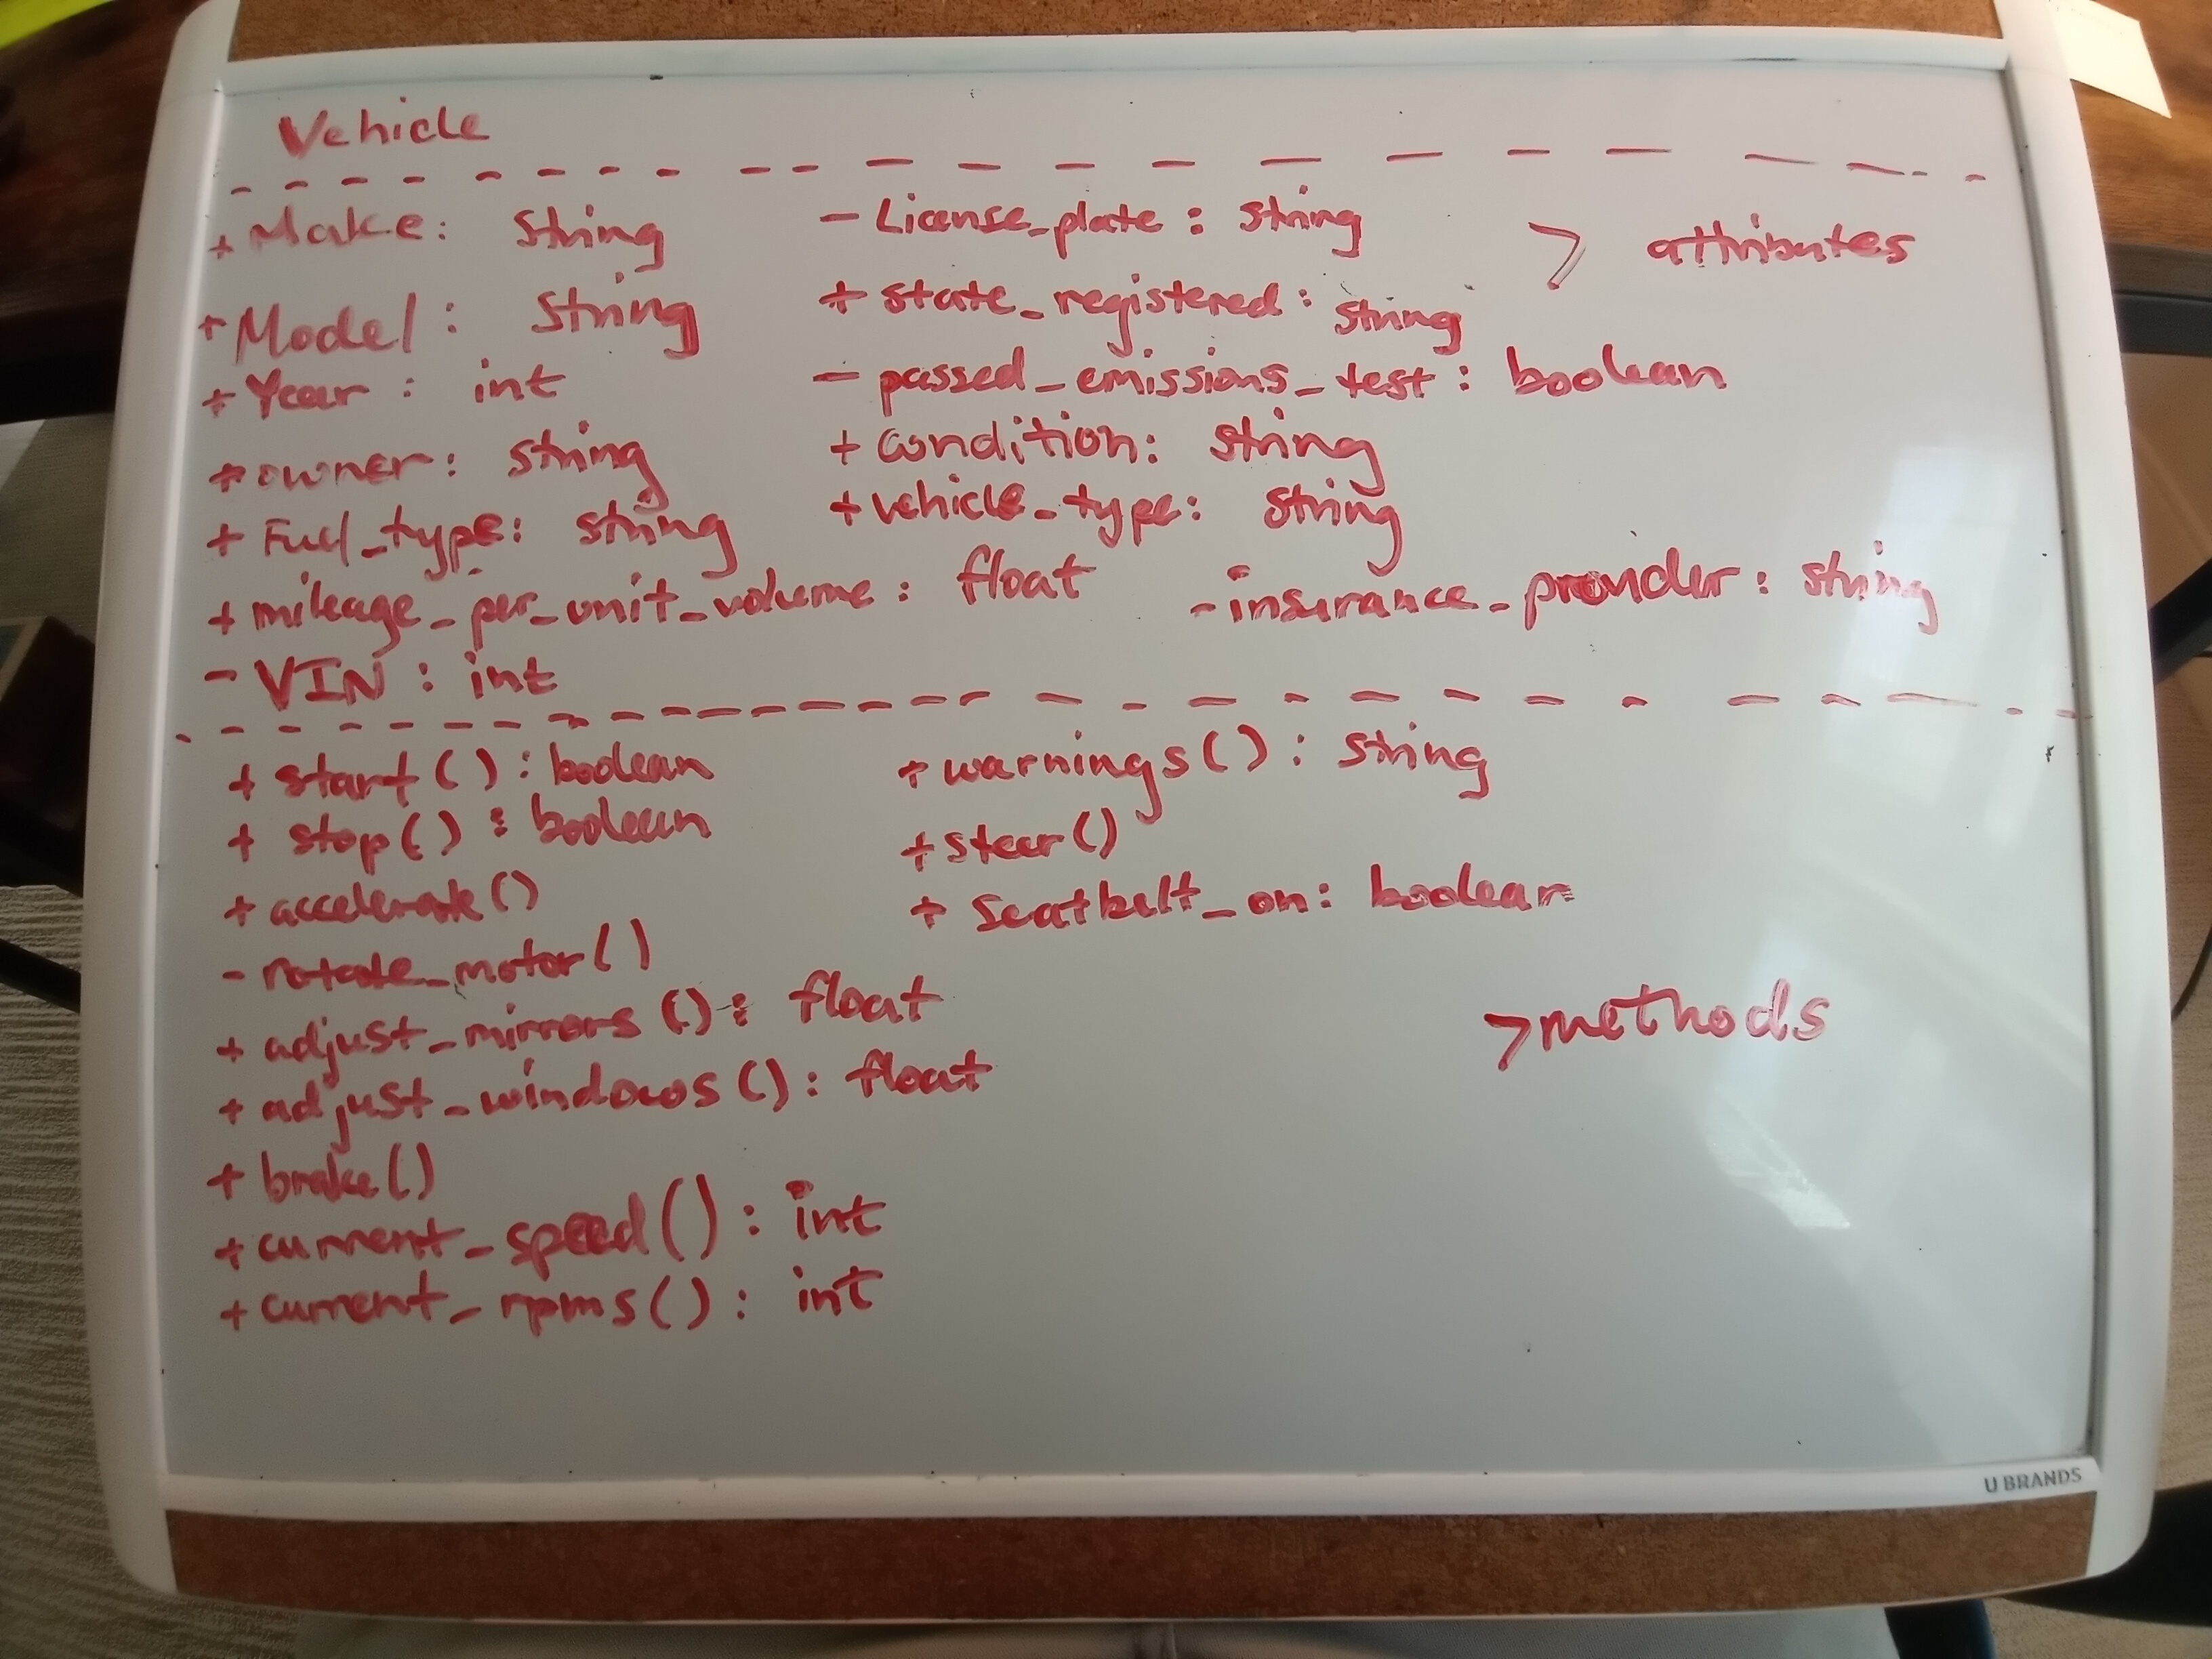 Vehicle
+ Make: String
+ Model: String
+ Year: int
+ owner: string
+ Fuel_type: string
+ mileage_per_unit_volume: float
- VIN: int
- License_plate: string
+ state_registered: string
- passed_emissions_test: boolean
+ condition: string
+ vehicle_type: string
- insurance_provider: string
> attributes
+ start(): boolean
+ stop(): boolean
+ accelerate()
- rotate_motor()
+ adjust_mirrors(): float
+ adjust_windows(): float
+ brake()
+ current_speed(): int
+ current_rpms(): int
+ warnings(): String
+ steer()
+ Seatbelt_on: boolean
> methods
U BRANDS